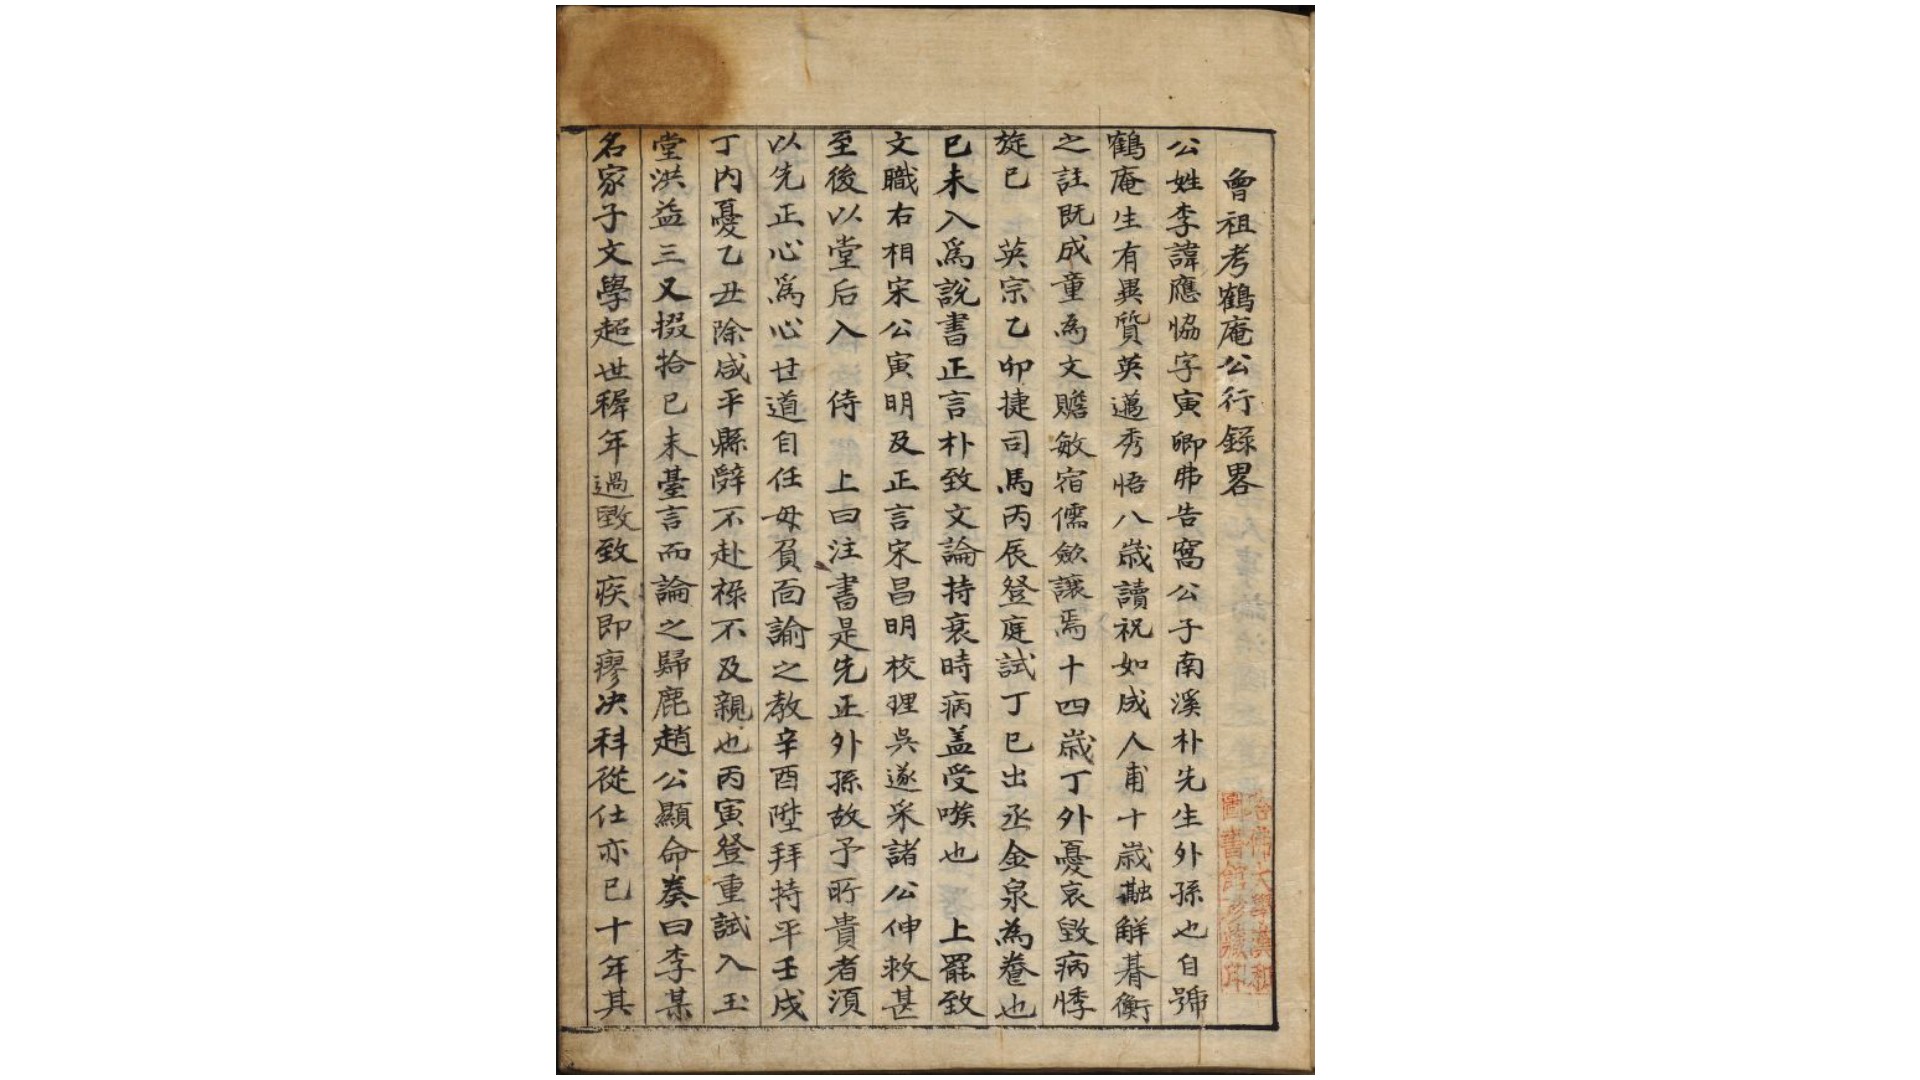 曾祖考鶴庵公行錄畧
公姓李諱應協字寅卿弗告窩公子南溪朴先生外孫也自號
鶴庵生有異質英邁秀悟八歲讀祝如成人甫十歲觕解朞衡
之註旣成童爲文贍敏宿儒歛讓焉十四歲丁外憂哀毀病悸
旋已 英宗乙卯捷司馬丙辰登庭試丁巳出丞金泉爲養也
已未入爲說書正言朴致文論持衰時病盖受嗾也 上罷致
文職右相宋公寅明及正言宋昌明校理吳遂采諸公伸救甚
至後以堂后入 侍 上曰注書是先正外孫故予所貴者須
以先正心爲心世道自任毋負面諭之教辛酉陞拜持平壬戌
丁內憂乙丑除咸平縣辭不赴祿不及親也丙寅登重試入玉
堂洪益三又掇拾已未臺言而論之歸鹿趙公顯命奏曰李某
名家子文學超世穉年過毀致疾卽瘳决科從仕亦已十年其
哈佛大學漢和
圖書館珍藏印